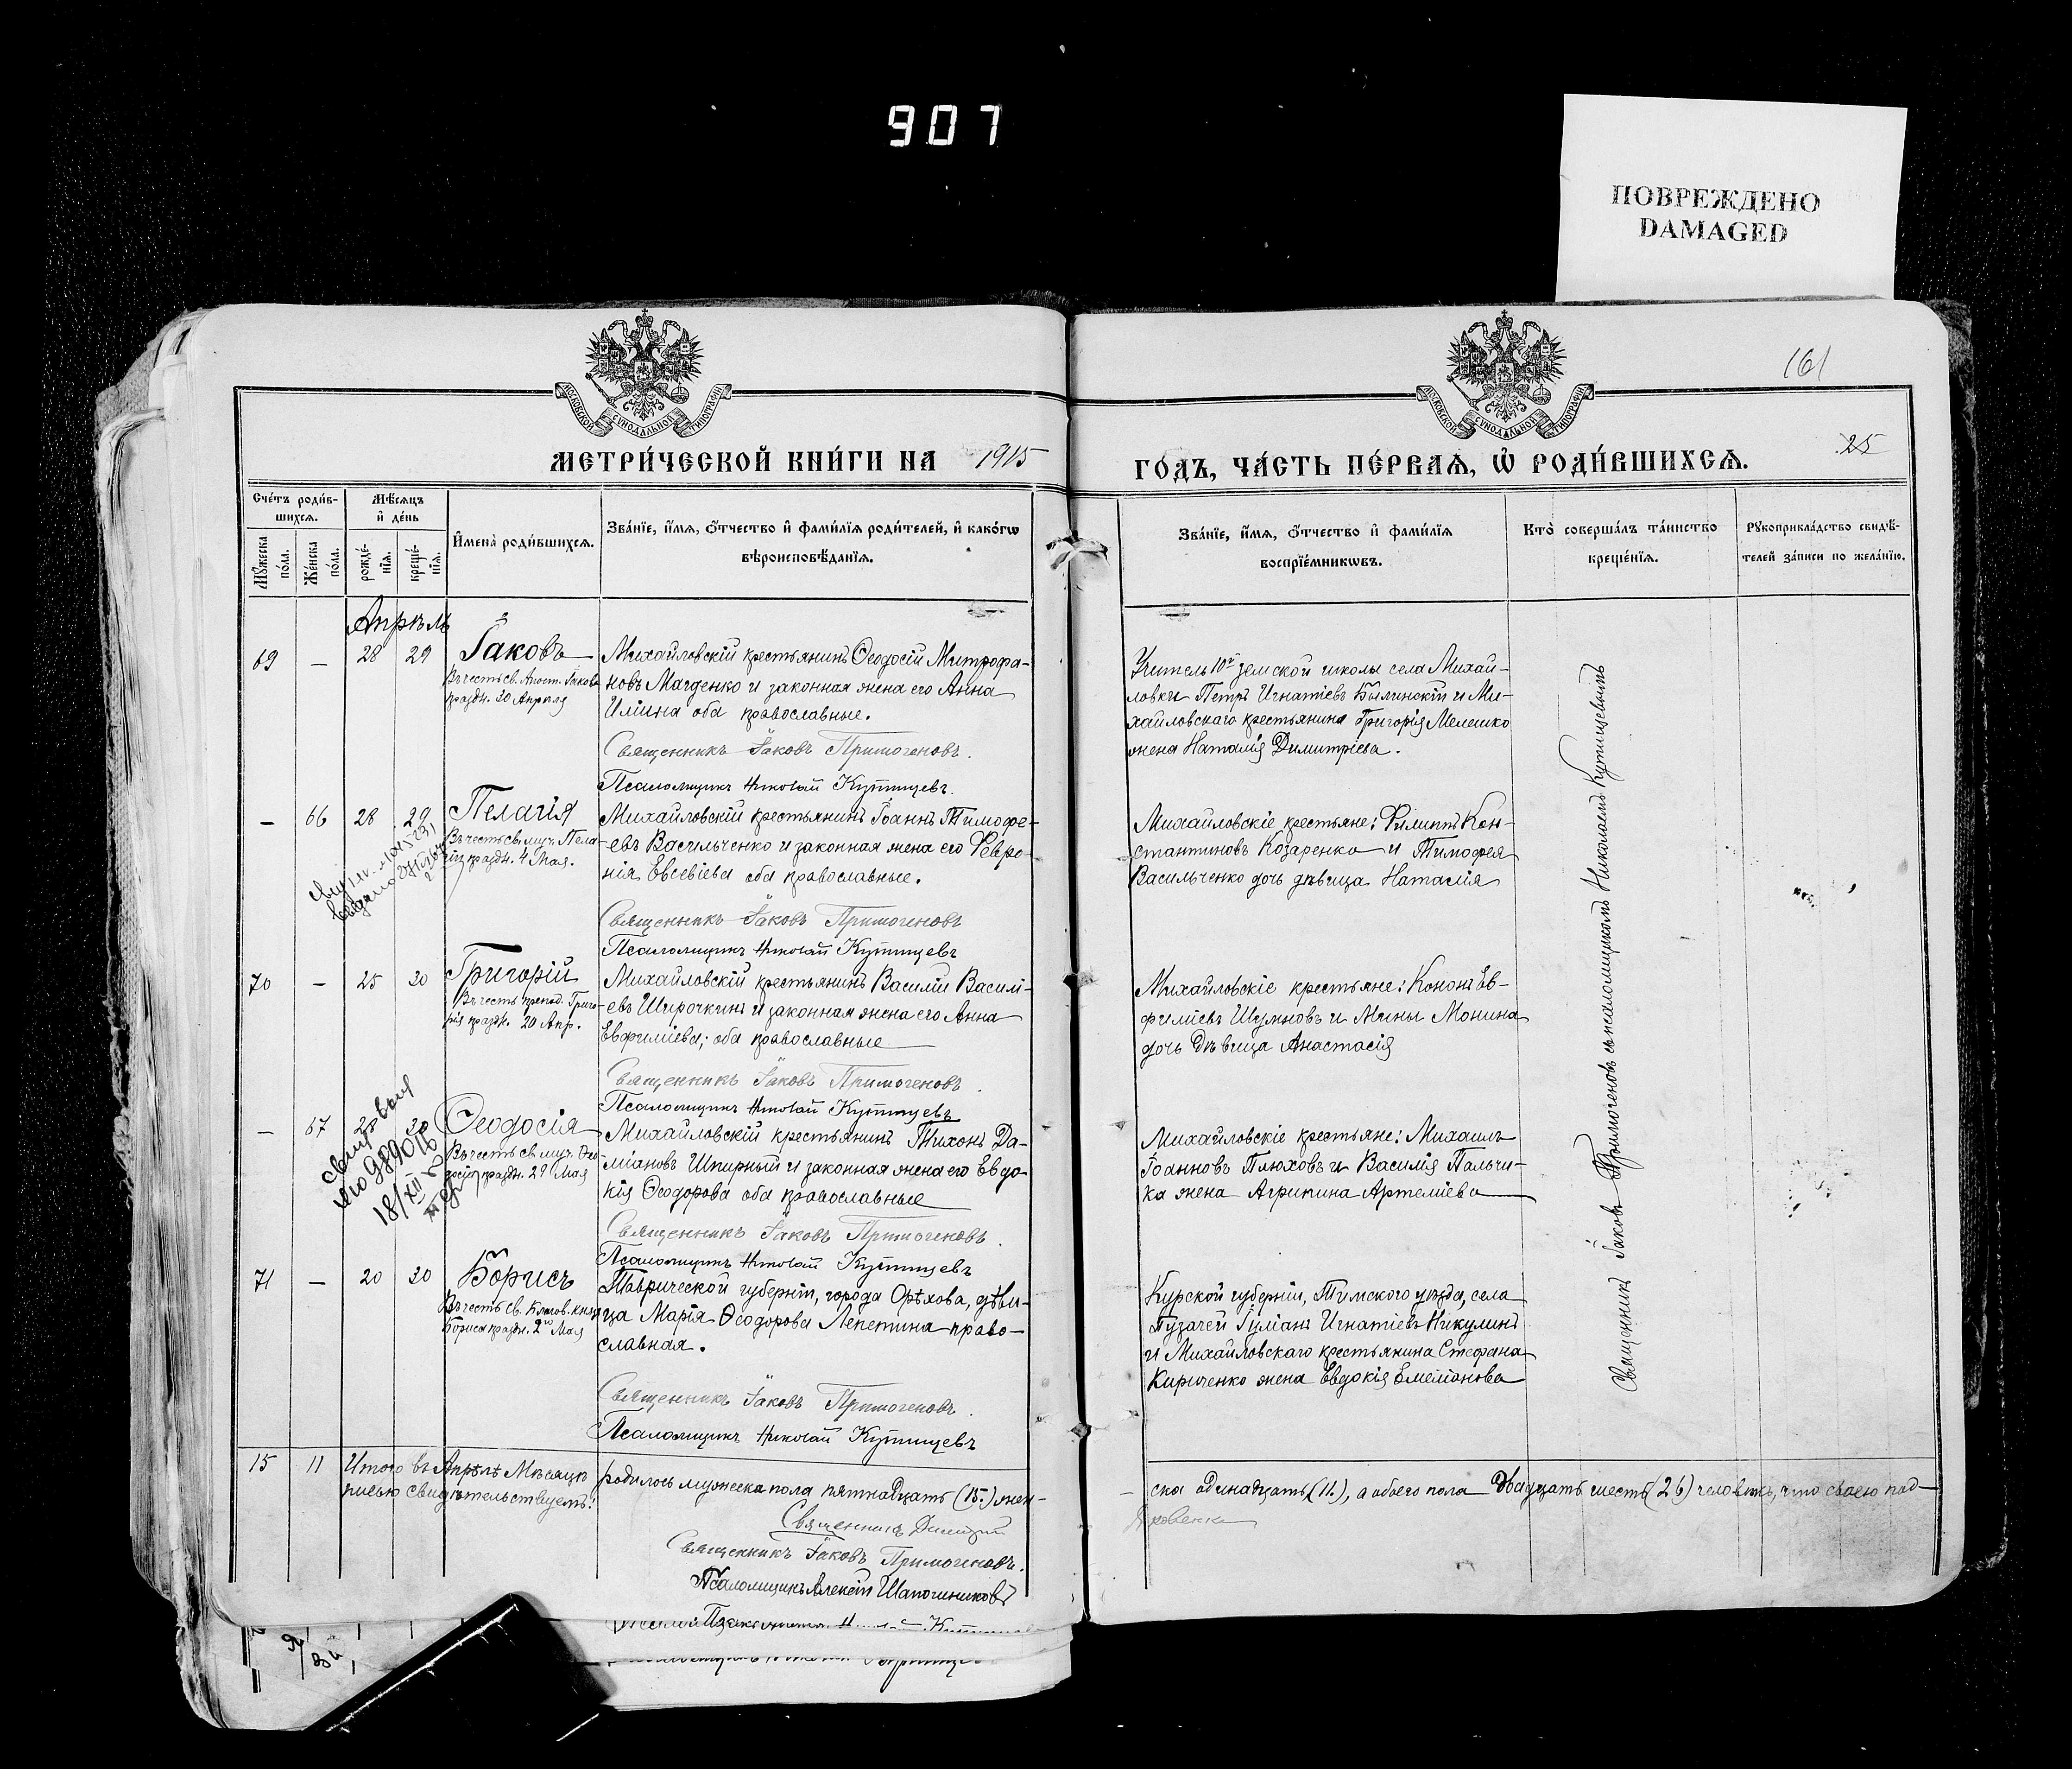 907
ПОВРЕЖДЕНО
DAMAGED
161
25
МОСКОВСКОЙ СѴНОДАЛЬНОЙ ТИПОГРАФІИ
МОСКОВСКОЙ СѴНОДАЛЬНОЙ ТИПОГРАФІИ
МЕТРИ́ЧЕСКОЙ КНИ́ГИ НА 1915
ГО́ДЪ, ЧА́СТЬ ПЕ́РВАѦ, Ѡ҆ РОДИ́ВШИХСѦ.
Сче́тъ роди́в-
шихсѧ.
Мѣ́сѧцъ
и҆ де́нь
Мꙋ́жеска
по́ла.
Же́нска
по́ла.
рожде́-
нїѧ.
креще́-
нїѧ.
И҆мена̀ роди́вшихсѧ.
Зва́нїе, и҆́мѧ, ѻ҆́тчество и҆ фами́лїѧ роди́телей, и҆ како́гѡ
вѣроисповѣ́данїѧ.
Зва́нїе, и҆́мѧ, ѻ҆́тчество и҆ фами́лїѧ
воспрїе́мникѡвъ.
Кто̀ соверша́лъ та́инство
креще́нїѧ.
Рꙋкоприкла́дство свидѣ́-
телей за́писи по жела́нїю.
Апрѣль
69 — 28 29 Іаковъ
Въ честь св. Апост. Іакова
праздн. 30 Апрѣля
Михайловскій крестьянинъ Ѳеодосій Митрофа-
новъ Магденко и законная жена его Анна
Иліина оба православные.
Священникъ Іаковъ Примогеновъ.
Псаломщикъ Николай Кутищевъ.
Учитель 10й земской школы села Михай-
ловки Петръ Игнатіевъ Былинскій и Ми-
хайловскаго крестьянина Григорія Мелешко
жена Наталія Димитріева.
— 66 28 29 Пелагія
Въ честь св. муч. Пела-
гіи праздн. 4 Мая.
Михайловскій крестьянинъ Іоаннъ Тимофе-
евъ Васильченко и законная жена его Февро-
нія Евсевіева оба православные.
Священникъ Іаковъ Примогеновъ
Псаломщикъ Николай Кутищевъ
Михайловскіе крестьяне: Филиппъ Кон-
стантиновъ Козаренко и Тимофея
Васильченко дочь дѣвица Наталія
70 — 25 30 Григорій
Въ честь препод. Григо-
рія праздн. 20 Апр.
Михайловскій крестьянинъ Василій Василі-
евъ Широчкинъ и законная жена его Анна
Евфиміева; оба православные
Священникъ Іаковъ Примогеновъ.
Псаломщикъ Николай Кутищевъ
Михайловскіе крестьяне: Кононъ Ев-
фиміевъ Шумновъ и Мины Монина
дочь дѣвица Анастасія
— 67 28 30 Ѳеодосія
Въ честь св. муч. Ѳео-
досіи праздн. 29 Мая
Михайловскій крестьянинъ Тихонъ Да-
міановъ Шпирный и законная жена его Евдо-
кія Ѳеодорова оба православные
Священникъ Іаковъ Примогеновъ.
Псаломщикъ Николай Кутищевъ
Михайловскіе крестьяне: Михаилъ
Іоанновъ Плюховъ и Василія Пальчи-
ка жена Агрипина Артеміева
71 — 20 30 Борисъ
Въ честь св. Благов. князя
Бориса праздн. 2го Мая
Таврической губерніи, города Орѣхова, дѣви-
ца Марія Ѳеодорова Лепетина право-
славная.
Священникъ Іаковъ Примогеновъ.
Псаломщикъ Николай Кутищевъ
Курской губерніи, Тимского уѣзда, села
Пузачей Іуліанъ Игнатіевъ Никулинъ
и Михайловскаго крестьянина Стефана
Кириченко жена Евдокія Емеліанова
Священникъ Іаковъ Примогеновъ съ псаломщикомъ Николаемъ Кутищевымъ
15 11 Итого въ Апрѣлѣ Мѣсяцѣ родилось мужеска пола пятнадцать (15.) жен-
ска одинадцать (11.), а обоего пола двадцать шесть (26) человѣкъ, что своею под-
писью свидѣтельствуемъ:
Священникъ Димитрій
Яровенко
Священникъ Іаковъ Примогеновъ.
Псаломщикъ Алексій Шапошниковъ